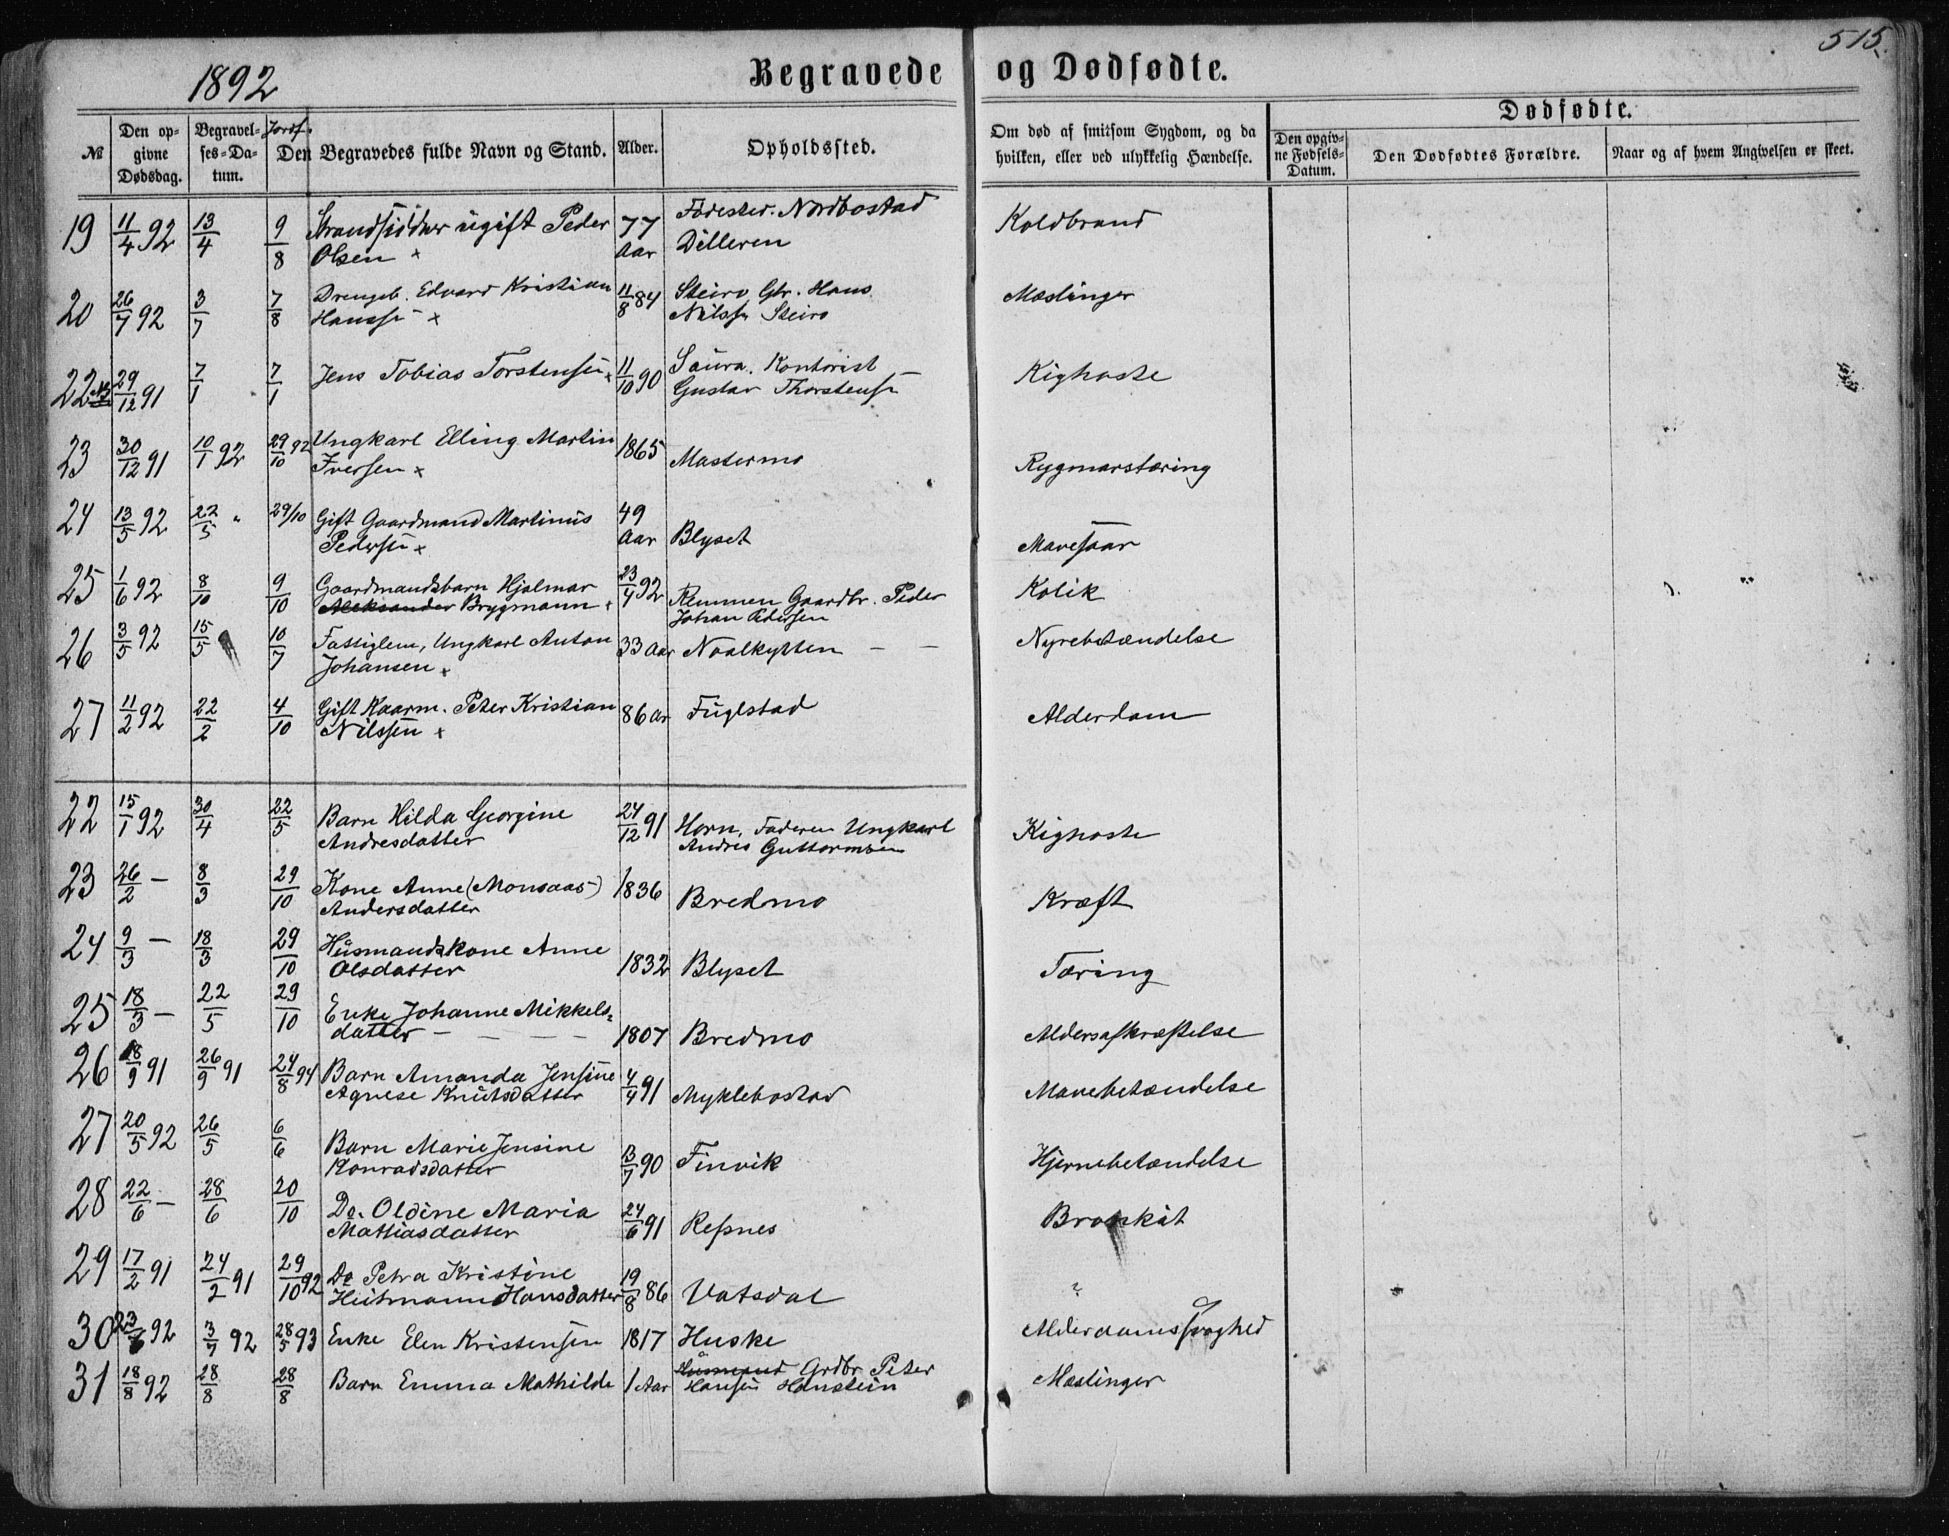 515.
1892
Begravede og Dødfødte.
Dødfødte.
№
Den op-
givne
Dødsdag.
Begravel-
ses-Da-
tum.
Jordf.
Den Begravedes fulde Navn og Stand.
Alder.
Opholdssted.
Om død af smitsom Sygdom, og da
hvilken, eller ved ulykkelig Hændelse.
Den opgiv-
ne Fødsels-
Datum.
Den Dødfødtes Forældre.
Naar og af hvem Angivelsen er skeet.
19 11/4 92 13/4 9/8 Strandsidder ugift Peder 77 Nordbostad Koldbrand
Olsen x Aar Dilleren
20 26/7 92 3/7 7/8 Drengeb. Edvard Kristian 11/8 84 Steiro Gbr. Hans Mæslinger
Hanssen x Nilssen Steiro
22 29/12 91 7/1 7/1 Jens Tobias Torstensen x 11/10 90 Saura. Kontorist Kighoste
Gustav Thorstensen
23 30/12 91 10/1 92 29/10 92 Ungkarl Elling Martin 1865 Mastermo Rygmarstæring
Iversen x
24 13/5 92 22/5 " 29/10 Gift Gaardmand Martinus 49 Blyset Mavesaar
Pedersen x Aar
25 1/6 92 8/10 9/10 Gaardmandsbarn Hjalmar 23/4 92 Remmen Gaardbr. Peder Kolik
Aleksander Brygmann x Johan Pedersen
26 3/5 92 15/5 10/7 Fattiglem, Ungkarl Anton 33 Aar Naalkytten Nyrebetændelse
Johansen x
27 11/2 92 22/2 4/10 Gift Kaarm. Peter Kristian 86 ar Fuglstad Alderdom
Nilssen x
22 15/1 92 30/4 22/5 Barn Hilda Georgine 24/12 91 Horn, Faderen Ungkarl Kighoste
Andresdatter Andres Guttormsen
23 26/2 — 8/3 29/10 Kone Anne (Monsaas) 1836 Bredmo Kræft
Andersdatter
24 9/3 — 18/3 29/10 Husmandskone Anne 1832 Blyset Tæring
Olsdatter
25 18/3 — 22/5 29/10 Enke Johanne Mikkels-
datter — — — — 1807 Bredmo Aldersafkræftelse
26 18/9 91 26/9 91 24/8 94 Barn Amanda Jensine 4/4 91 Myklebostad Mavebetændelse
Agnese Knutsdatter
27 20/5 92 26/5 6/6 Barn Marie Jensine 13/7 90 Finvik Hjernebetændelse
Konradsdatter
28 22/6 — 28/6 20/10 Do. Oldine Maria 24/6 91 Repnes Bronkit
Mattiasdatter
29 17/2 91 24/2 91 29/10 92 Do Petra Kristine 19/8 86 Vatsdal "
Heitmann Hansdatter
30 92 3/7 92 28/5 93 Enke Elen Kristensen 1817 Huske Alderdomssvaghed
31 18/8 92 28/8 28/8 Barn Emma Mathilde 1 Aar Husmand Grdbr. Peter Mæslinger
Hansen Hanstein